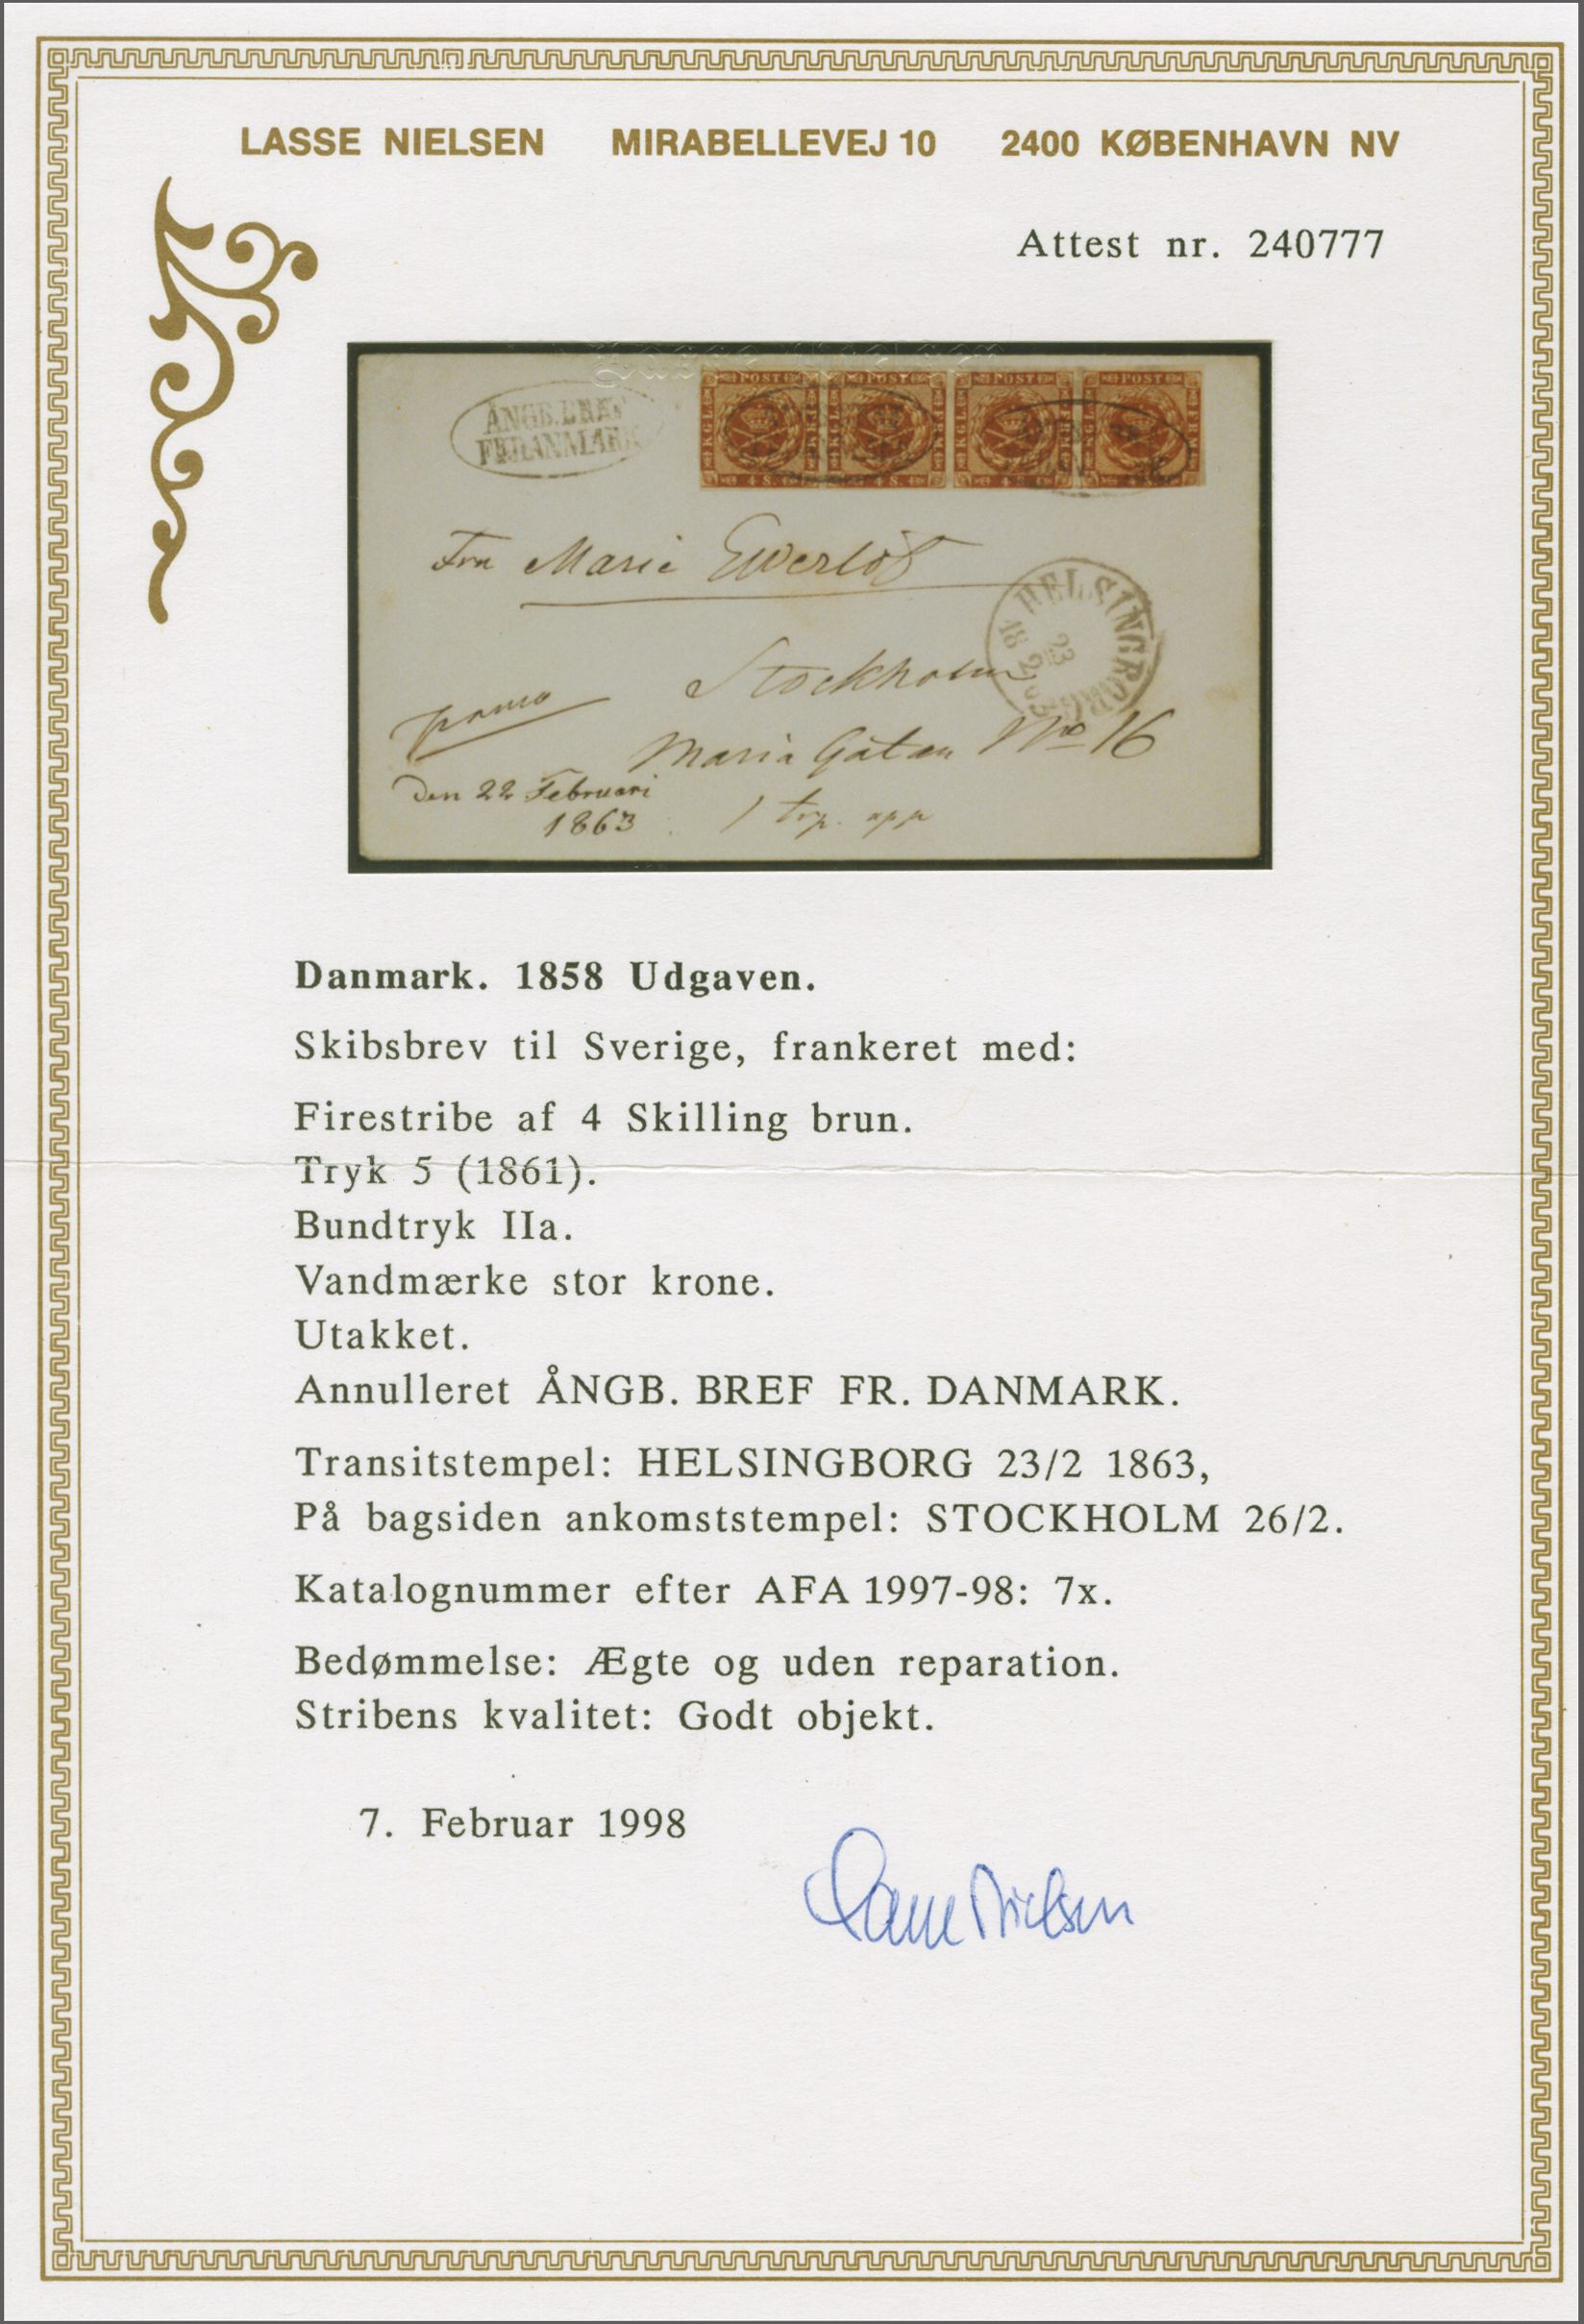 LASSE NIELSEN MIRABELLEVEJ 10 2400 KØBENHAVN NV
Attest nr. 240777
Lasse Nielsen
ÅNGB. BREF
FR. DANMARK
POST POST POST POST
4 S. 4 S.
Fru Marie Ewerlöf
HELSINGBORG
23
18 2 63
Stockholm
Maria Gatan No 16
Den 22 Februari
1863
1 trp. upp
Danmark. 1858 Udgaven.
Skibsbrev til Sverige, frankeret med:
Firestribe af 4 Skilling brun.
Tryk 5 (1861).
Bundtryk IIa.
Vandmærke stor krone.
Utakket.
Annulleret ÅNGB. BREF FR. DANMARK.
Transitstempel: HELSINGBORG 23/2 1863,
På bagsiden ankomststempel: STOCKHOLM 26/2.
Katalognummer efter AFA 1997-98: 7x.
Bedømmelse: Ægte og uden reparation.
Stribens kvalitet: Godt objekt.
7. Februar 1998
Lasse Nielsen